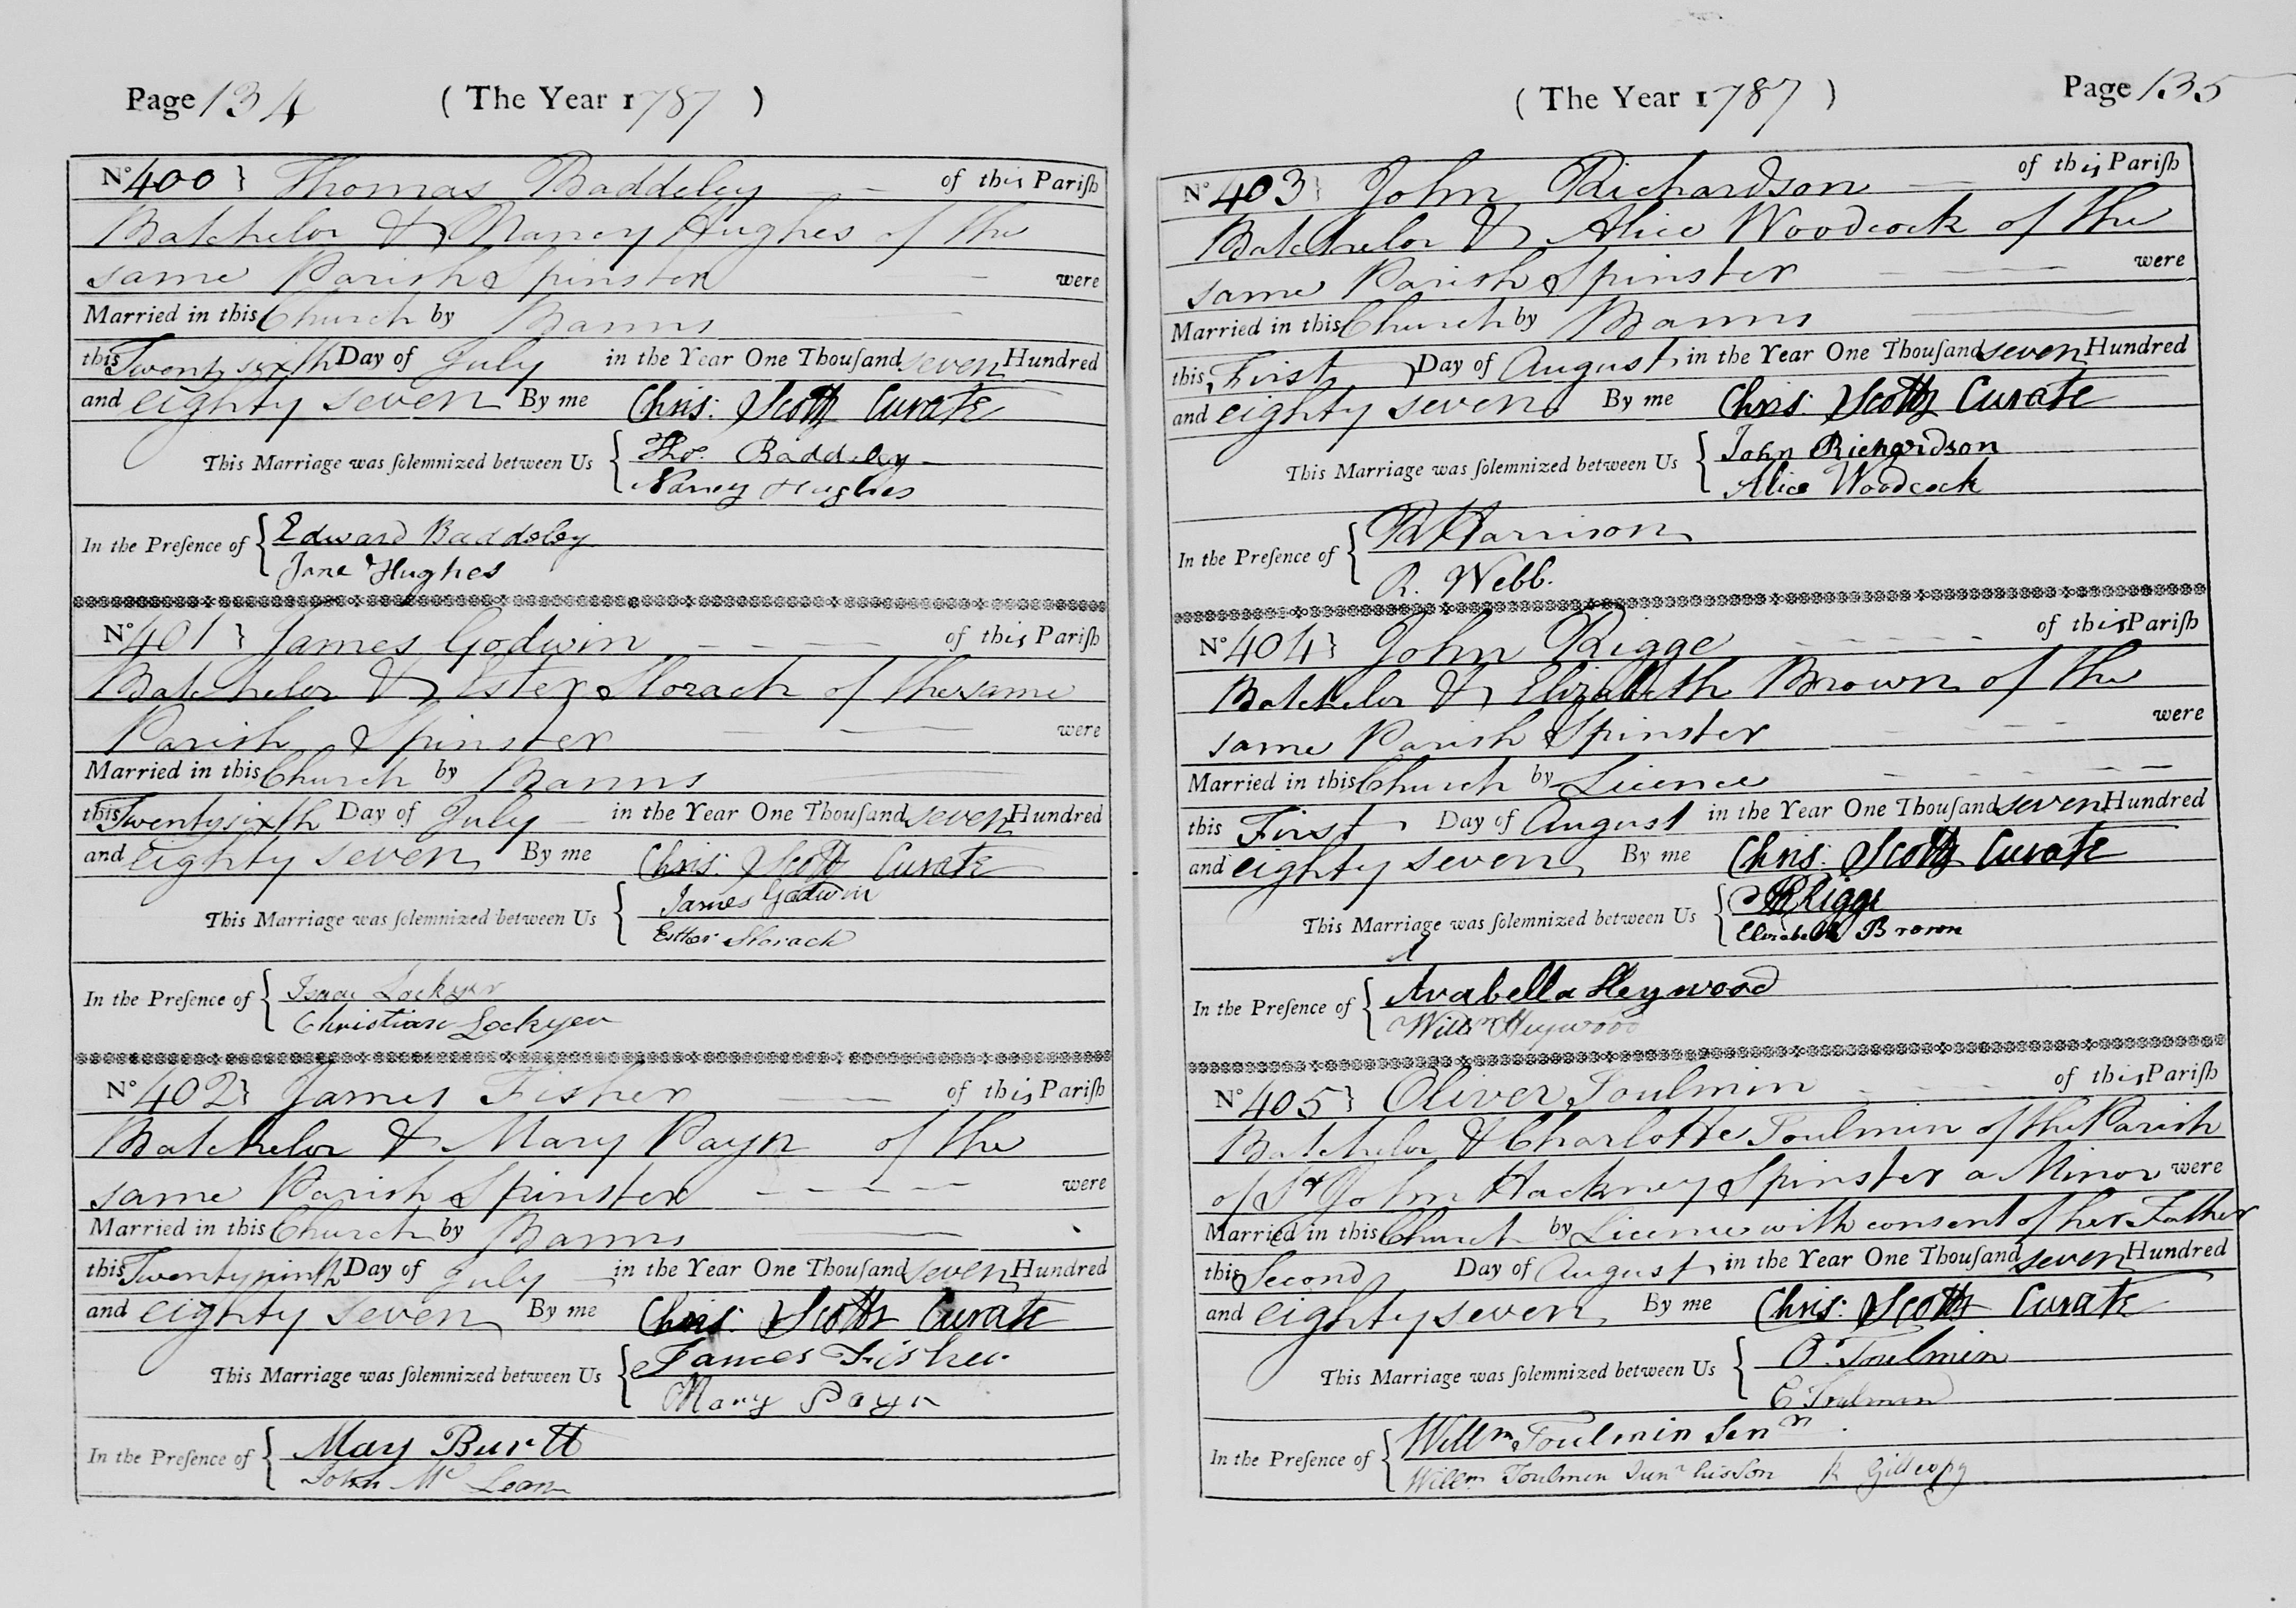 Page 134 ( The Year 1787 )
No 400 } Thomas Baddeley of this Pariſh
Batchelor & Nancy Hughes of the
same Parish Spinster were
Married in this Church by Banns
this Twenty sixth Day of July in the Year One Thouſand seven Hundred
and eighty seven By me Chris: Scott Curate
This Marriage was ſolemnized between Us { Thos. Baddeley
Nancy Hughes
In the Preſence of { Edward Baddeley
Jane Hughes
No 401 } James Godwin of this Pariſh
Batchelor & Ester Storach of the same
Parish Spinster were
Married in this Church by Banns
this Twenty sixth Day of July in the Year One Thouſand seven Hundred
and eighty seven By me Chris: Scott Curate
This Marriage was ſolemnized between Us { James Godwin
Esther Storach
In the Preſence of { Isaac Lockyer
Christian Lockyer
No 402 } James Fisher of this Pariſh
Batchelor & Mary Payn of the
same Parish Spinster were
Married in this Church by Banns
this Twenty ninth Day of July in the Year One Thouſand seven Hundred
and eighty seven By me Chris: Scott Curate
This Marriage was ſolemnized between Us { James Fisher
Mary Payn
In the Preſence of { May Burtt
John Mc Lean
( The Year 1787 ) Page 135
No 403 } John Richardson of this Pariſh
Batchelor & Alice Woodcock of the
same Parish Spinster were
Married in this Church by Banns
this First Day of August in the Year One Thouſand seven Hundred
and eighty seven By me Chris: Scott Curate
This Marriage was ſolemnized between Us { John Richardson
Alice Woodcock
In the Preſence of { Harrison
R. Webb.
No 404 } John Rigge of this Pariſh
Batchelor & Elizabeth Brown of the
same Parish Spinster were
Married in this Church by Licence
this First Day of August in the Year One Thouſand seven Hundred
and eighty seven By me Chris: Scott Curate
This Marriage was ſolemnized between Us { Rigge
Elizabeth Brown
In the Preſence of { Arabella Heywood
Willm Heywood
No 405 } Oliver Toulmin of this Pariſh
Batchelor & Charlotte Toulmin of the Parish
of St John Hackney Spinster a Minor were
Married in this Church by Licence with consent of her Father
this Second Day of August in the Year One Thouſand seven Hundred
and eighty seven By me Chris: Scott Curate
This Marriage was ſolemnized between Us { O. Toulmin
C Toulman
In the Preſence of { Willm Toulmin Senr
Willm Toulmin Junr his Son R